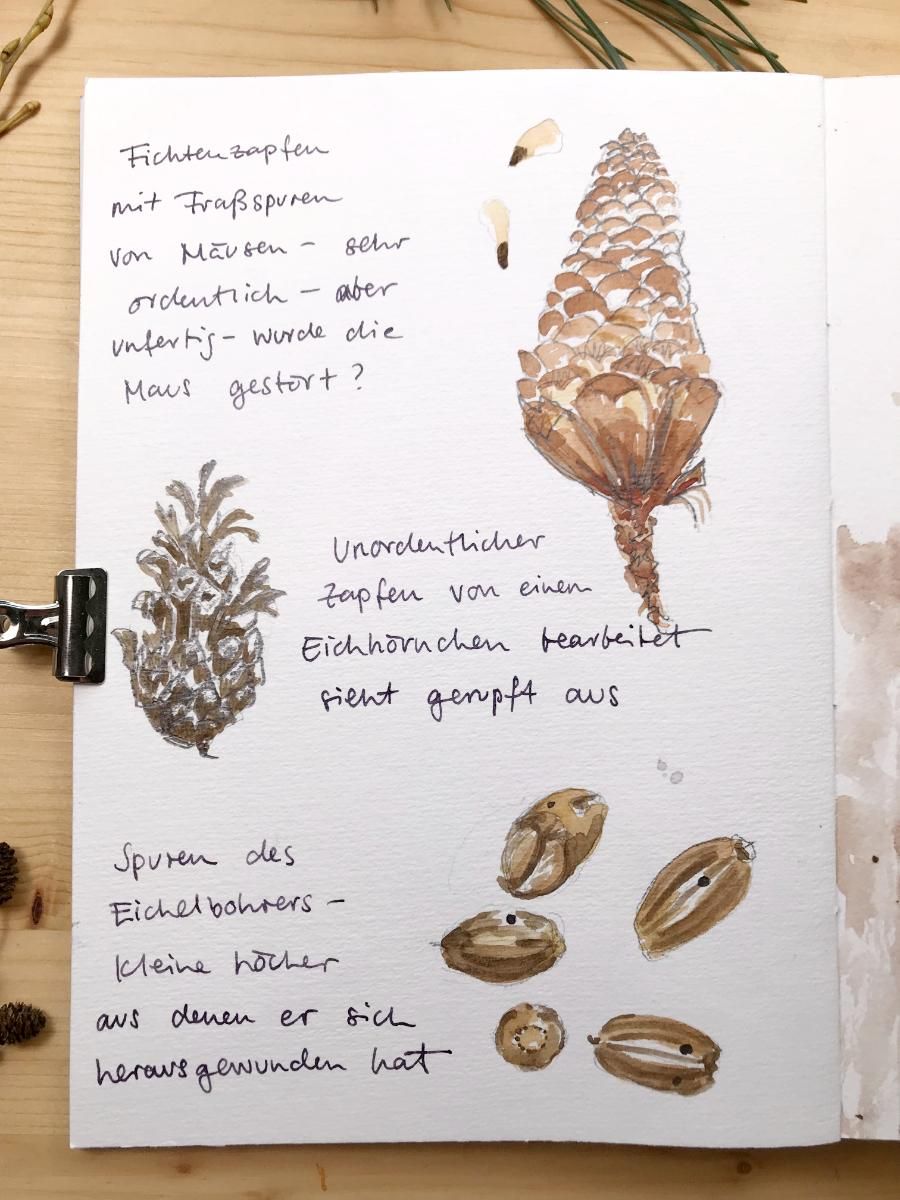 Fichtenzapfen
mit Fraßspuren
von Mäusen – sehr
ordentlich – aber
unfertig – wurde die
Maus gestört?
Unordentlicher
Zapfen von einem
Eichhörnchen bearbeitet
sieht gerupft aus
Spuren des
Eichelbohrers –
kleine Löcher
aus denen er sich
herausgewunden hat